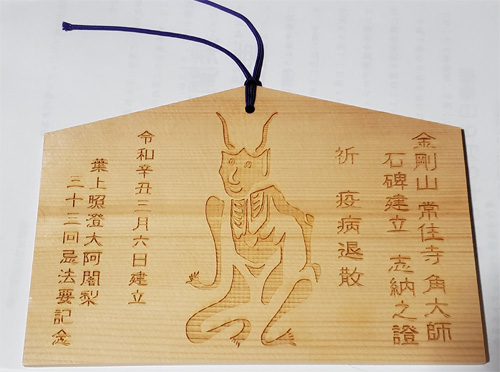 金剛山 常住寺 角大師
石碑建立 志納之證
祈 疫病退散
令和辛丑三月六日建立
葉上照澄大阿闍梨
二十三回忌法要記念